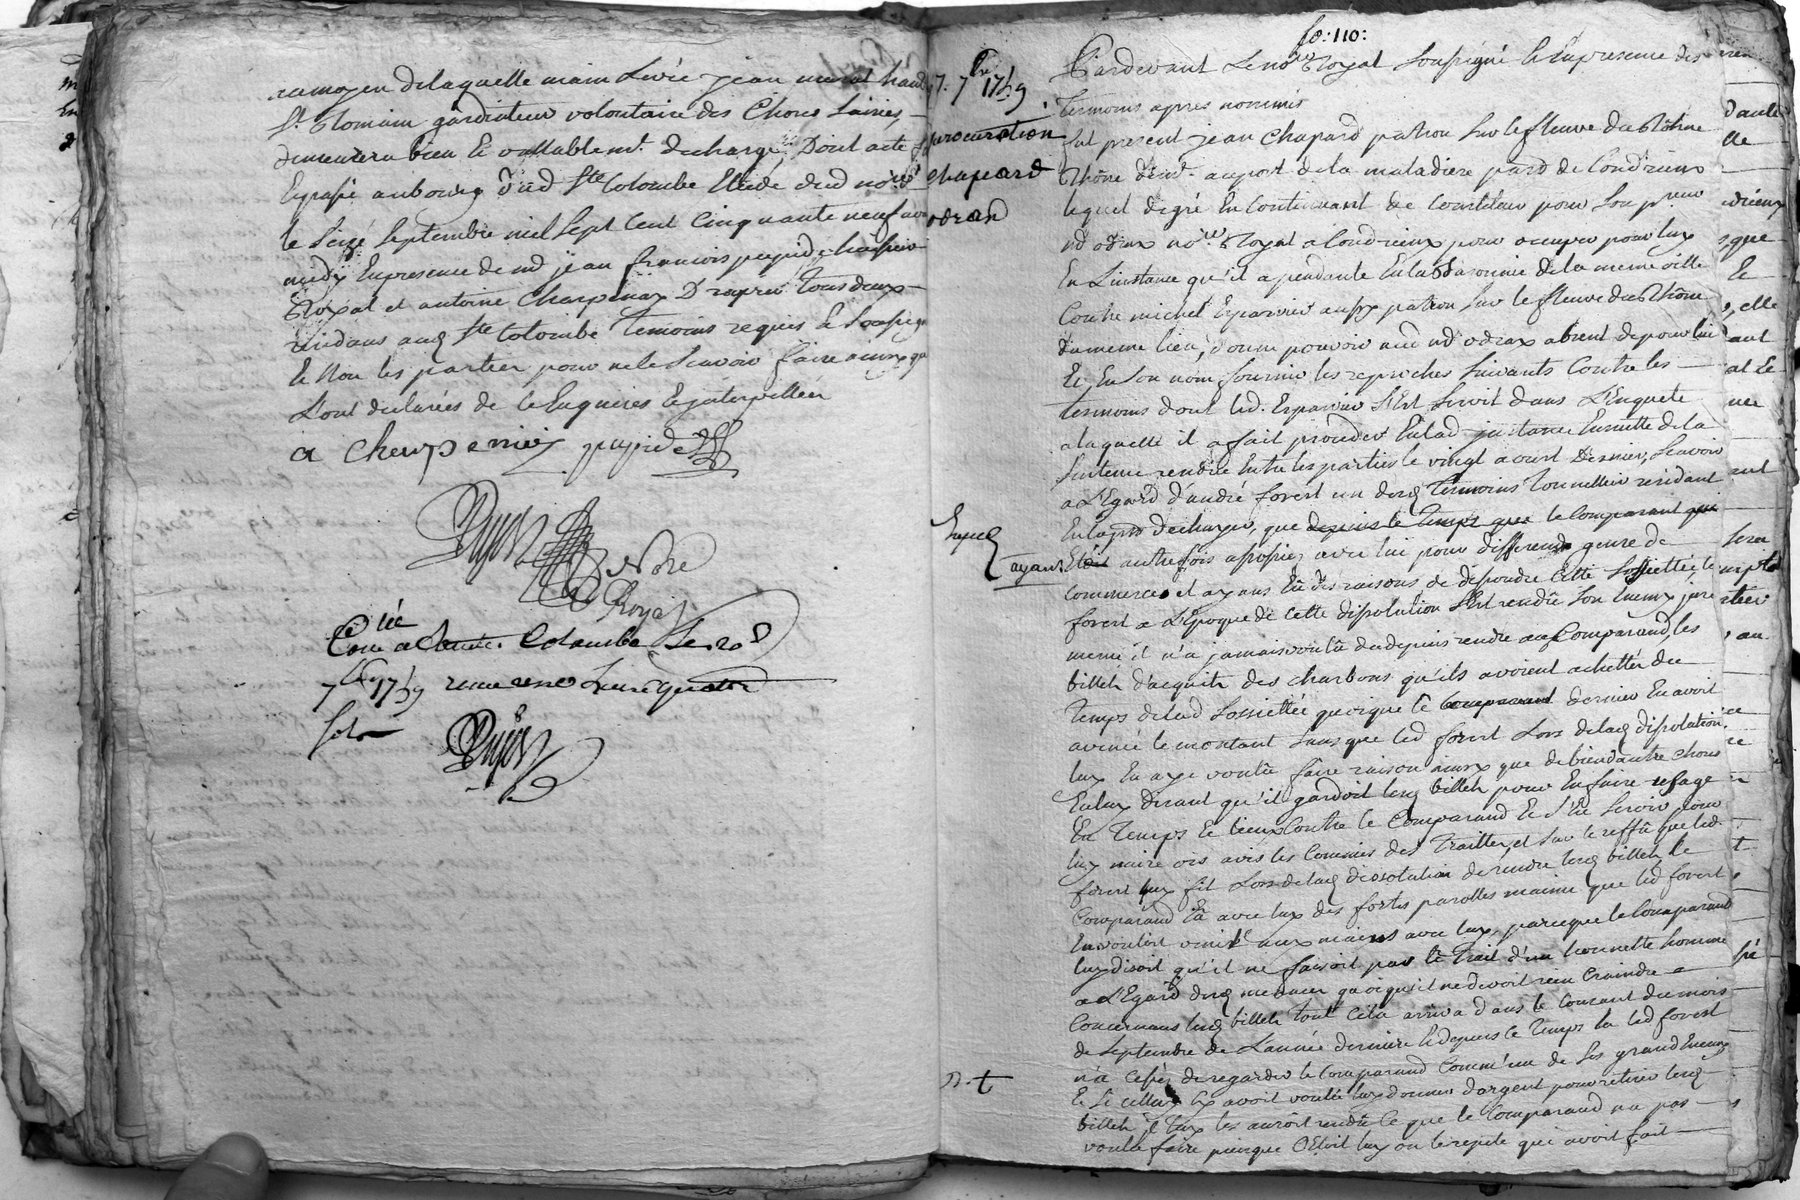 au moyen de laquelle main Levée jean
St. Romain gardiateur volontaire des Choses Saisies
demeurera bien et vallablemt. dechargé, Dont acte
fait passé au bourg dud Ste Colombe Etude dud nore
le Seize Septembre mil Sept Cent Cinquante neuf avant
midy En presence de md jean francois pupide
Royal et antoine Charpenay Drapier tous deux
residants aud Ste Colombe Temoins requis Et Soussignés
Et Non les parties pour ne le Scavoir faire ainsy qu
L'ont declarées de ce Enquises Et jnterpellées
a Charpenniey pupide
Dujast Nore
Royal
Conlé a Sainte Colombe Le 20e
7bre 1759 reçu
Dujast
fo: 110:
17. 7bre 1759
procuration
chapard
odrad
Pardevant Le nore Royal Soussigné Et En presence des
Temoins apres nommés
fut present jean Chapard patron Sur le fleuve du Rhône
Rhône demt. au port de la maladiere pard de Condrieux
lequel de gré En Continuant de Constituer pour Son preur
md odrax nore Royal a Condrieux pour occuper pour luy
En L'instance qu'il a pendante En la Baronnie de la meme ville
Contre michel Eparvier aussy patron Sur le fleuve du Rhône
du meme lieu, donne pouvoir aud md odrax absent de pour lui
Et En Son nom fournir les reproches Suivants Contre les
temoins dont led. Eparvier S'Est Servit dans L'Enquete
a laquelle il a fait proceder En lad jnstance Ensuitte de la
Sentence rendüe Entre les parties le vingt aoust Dernier, Scavoir
a L'Egard d'andré forest un desd Temoins Tonnellier residant
que depuis le Temps que le Comparant qui
ayant Etait autrefois associez avec lui pour different genre de
Commerce et ayans Eû des raisons de dissoudre Cette Sossiettée, le
forest a L'Epoque de Cette dissolution S'Est rendû Son Ennemy juré
meme il n'a jamais voulû du depuis rendre au Comparand les
billets d'acquits des charbons qu'ils avoient achettés du
Temps de lad Sossiettée quoique le Comparand dernier En avoit
avancé le montant Sans que led forest Lors de lad dissolution
luy En aye voulû faire raison ainsy que de bien d'autre Choses
En luy disant qu'il gardoit lesd billets pour En faire usage
En Temps et lieux Contre le Comparand Et S'En Servir pour
luy nuire vis avis les Commis des Traittes, et Sur le reffû que led.
forest luy fit Lors de lad dissolution de rendre lesd billets, le
Comparand Eû avec luy des fortes parolles meme que led forest
En voulait venir aux mains avec luy, parceque le Comparand
luy disoit qu'il ne faisoit pas le Trait d'un honnette homme
a L'Egard desd menaces quoiqu'il ne devoit rien Craindre
Concernans lesd billets Tout Cela arriva dans le Courant du mois
de Septembre de L'année derniere Et depuis ce Temps la led forest
n'a Cessé de regarder le Comparand Comm'un de Ses grand Ennemy
Et Si celluy Cy avoit voulû luy donner d'argent pour retirer lesd
billets il luy les auroit rendû Ce que le Comparand n'a pas
voulû faire puisque C'Etoit luy
n. t